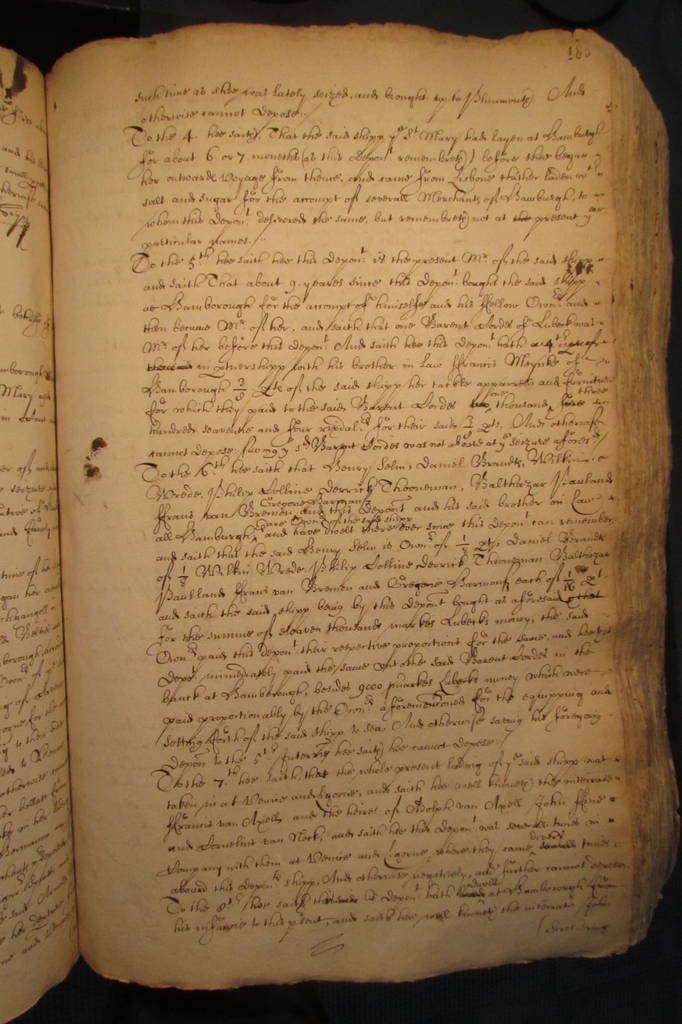 180
such time as shee was lately seized, and brought up to Plimmouth And
otherwise cannot depose./
To the 4. hee saith That the said shipp ye St Mary had layen at Hamburgh
for about 6 or 7 months (as this Depont remembreth) before shee began
her outward voyage from thence, and came from Lisbone thither laden wth
salt and sugar for the accompt of severall Merchants of Hamburgh, to
whom this Depont delivered the same, but remembreth not at present
particular names./
To the 5th hee saith hee this Depont is the present Mr of the said shipp
and saith That about 9 yeares since this Depont bought the said shipp
at Hamborough for the accompt of himselfe and his fellow Ownrs and
then became Mr of her, and saith that one Barent Cordes of Lubeck was
Mr of her before this Depont And saith hee this Depont hath
in Partnershipp with his brother in law Francis Meynke of
Hamborough pts of the said shipp her tackle apparrell and furniture
for which they paid to the said Barent Cordes thousand three
hundred seaventie and four rixdalrs for their said pts, And otherwise
cannot depose saving ye sd Barent Cordes was not aboard at ye seizure aforesd/
To the 6th hee saith that Henry Selm, Daniel Brandt, Wilkin
Wrede, Philip Colline Derrick Thooneman, Balthazar Pauland
Frans van Bremen Gregorie Barmans and this Depont and his said brother in Law
all Hamburgh are Ownrs of the said shipp and have dwelt there ever since this Depont can remember
and saith that the said Henry Selm is Ownr of 1/8 pt, Daniel Brandt
of 1/8 Wilkin Wrede, Philip Colline Derrick Thoneman Balthazar
Paulland Frans van Bremen and Gregorie Barmans each of 1/16 pt
and saith the said shipp being by this Depont bought as aforesaid
for the summe of eleaven thousand markes Lubecks money, the said
Ownrs paid this Depont their respective proportions for the same, and hee this
Depont immediately paid the same unto the said Barent Cordes in the
banck at Hamborough, besides 9000 markes Lubecks money which were
paid proportionably by the Ownrs aforementioned for the equipping and
setting forth of the said shipp to sea. And otherwise saving his foregoing
Deposn to the 5th Interry hee saith hee cannot depose./
To the 7th hee saith that the whole present lading of ye said shipp was
taken in at Venice and Ligorne, and saith hee well knoweth the interrate
Francis van Axell and the heires of Adolph van Axell John
and Cornelius van and saith hee this Depont was severall times in
Company with them at Venice and Ligorne, where they came divers times
aboard this Deponts shipp, And otherwise negatively, and further cannot depose
To the 8th hee saith hee this Depont hath dwelt at Hamborough from
his infancie to this pnt, and saith hee well knoweth the interrate John